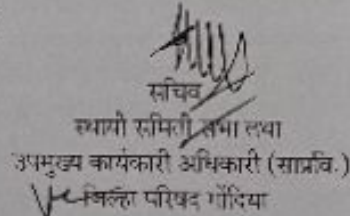 सचिव
स्थायी समिती सभा तथा
उपमुख्य कार्यकारी अधिकारी (साप्रवि.)
जिल्हा परिषद गोंदिया